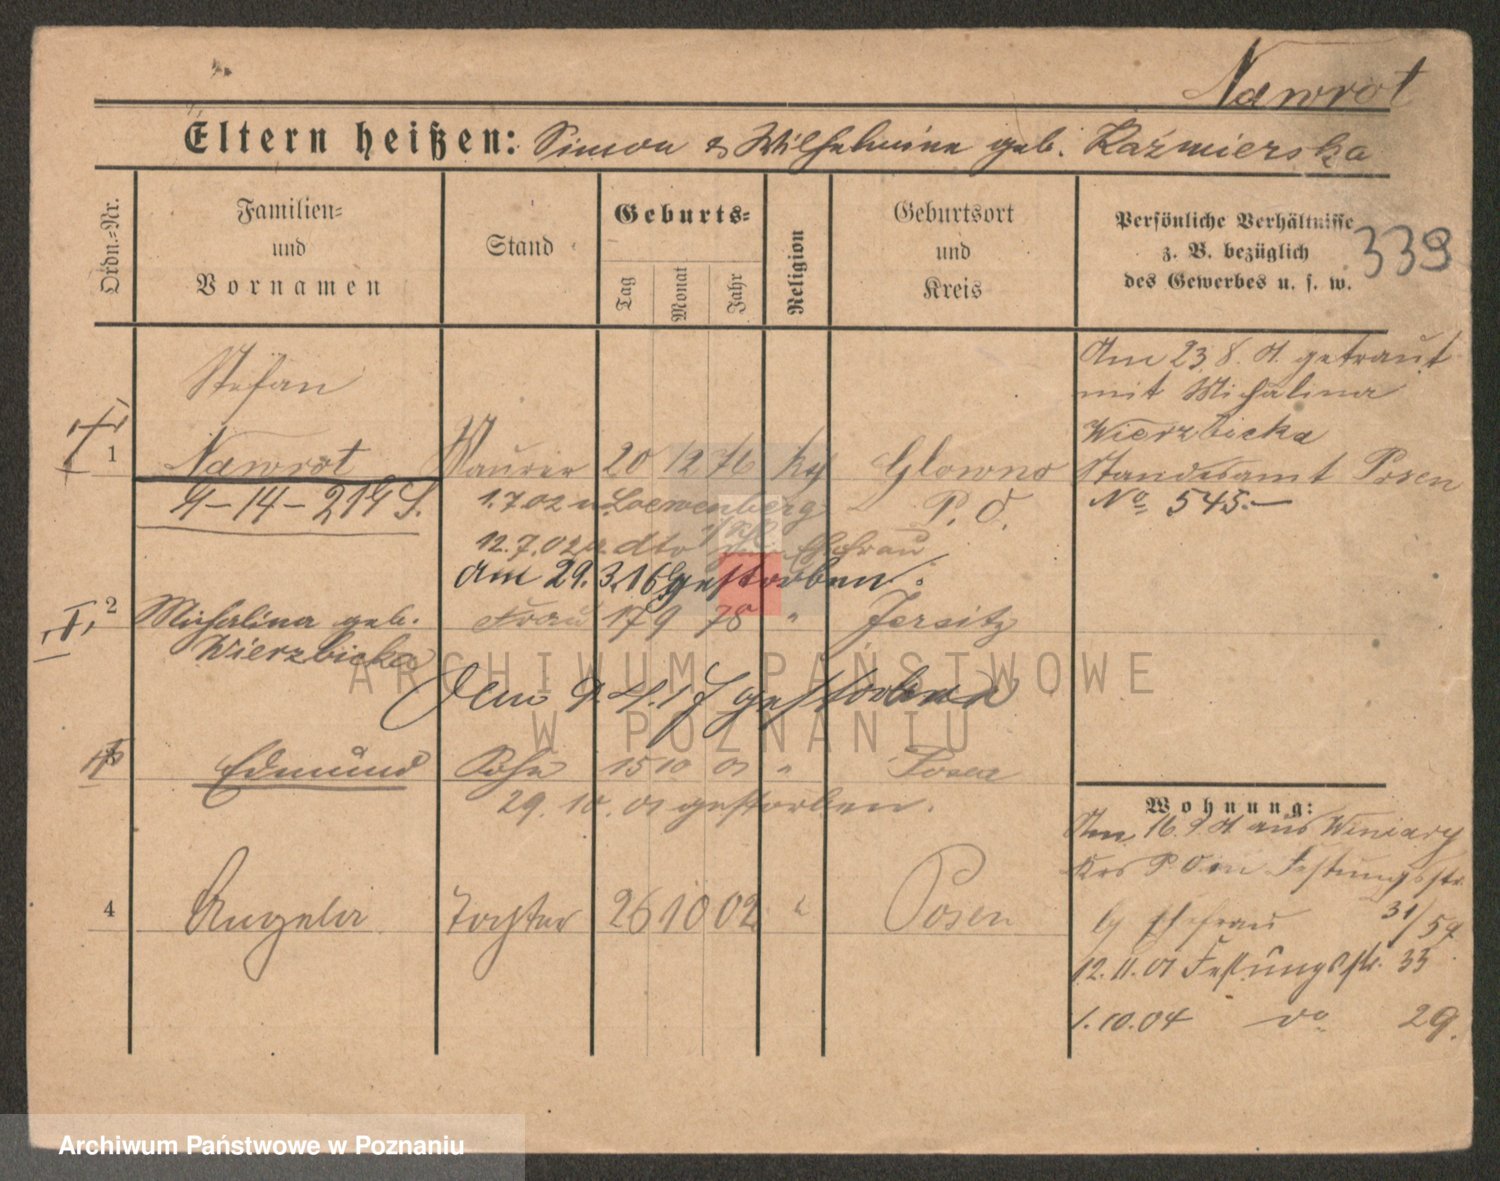 Nawrot
Eltern heißen: Simon & Wilhelmine geb. Kaźmierska
Ordn.-Nr.
Familien-
und
Vornamen
Stand
Geburts-
Tag
Monat
Jahr
Religion
Geburtsort
und
Kreis
Persönliche Verhältnisse
z. B. bezüglich
des Gewerbes u. s. w.
339
Stefan
1 Nawrot Maurer 20 12 76 kth Glowno
P. O.
4-14-219 S.
1.7.02 n. Loewenberg
12.7.02 dto Ehefrau
Am 29.3.16 gestorben.
Am 23 8. 01. getraut
mit Michalina
Wierzbicka
Standesamt Posen
No 545.-
I. 2 Michalina geb. Frau 17 9 78 " Jersitz
Wierzbicka
Am 9.4.17 gestorben
3 Edmund Sohn 15 10 01 " Posen
29. 10. 01 gestorben.
4 Angela Tochter 26 10 02 " Posen
Wohnung:
Am 16. 9. 01 aus Winiary
Krs P. O in Festungsstr.
by Ehefrau 31/59
12.11.01 Festungsstr. 33
1.10.04 do 29.
ARCHIWUM PAŃSTWOWE
W POZNANIU
Archiwum Państwowe w Poznaniu